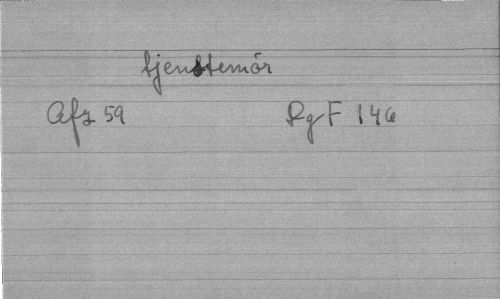 tjenstemör
Afz 59 RgF 146